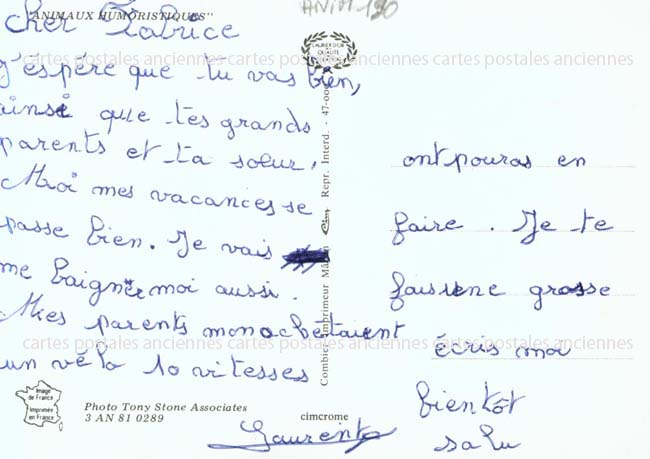 "ANIMAUX HUMORISTIQUES"
ANIM 190
cher Fabrice
j'éspére que tu vas bien,
ainsi que tes grands
parents et ta soeur,
Moi mes vacances se
passe bien. Je vais
me baigner moi aussi.
Mes parents mon achêtaient
un vélo 10 vitesses
ont pouras en
faire. Je te
fais une grosse
écris moi
bientôt
salu
Laurent
LAURIER D'OR
QUALITE
Combier Imprimeur Mâcon Cim Repr. Interd. - 47-00
Image
de France
Imprimée
en France
Photo Tony Stone Associates
3 AN 81 0289
cimcrome
cartes postales anciennes cartes postales anciennes cartes postales anciennes
cartes postales anciennes cartes postales anciennes cartes postales anciennes